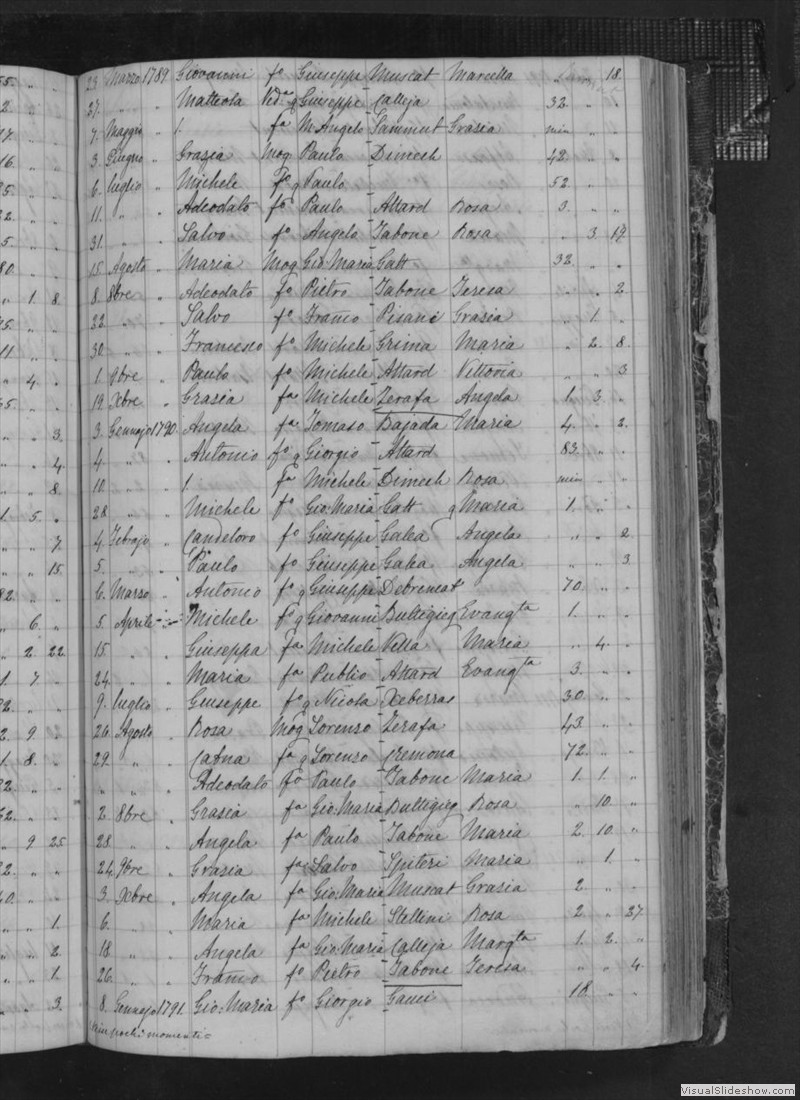 55. " "
2. " "
17. " "
16. " "
25. " "
22. " "
5. " "
80. " "
" 1. 8.
25. " "
11. " "
" 4. "
55. " "
" " 3.
" " 4.
" " 8.
1. 5. "
" " 7.
" " 15.
82. " "
" 6. "
" 2. 22.
1. 7. "
2. 9. "
1. 8. "
" 9. 25.
" " 1.
" " 2.
" " 1.
" " 3.
23. Marzo 1789. Giovanni fo Giuseppe Muscat Marcella 18.
27. " " Matteola Veda q Giuseppe Calleja 32. " "
7. Maggio " /. fa M. Angelo Sammut Grasia min " "
3. Giugno " Grasia Mog Paulo Dimech 42. " "
6. luglio " Michele Fo q Paulo 52. " "
11. " " Adeodato fo Paulo Attard Rosa 3. " "
31. " " Salvo fo Angelo Tabone Rosa " 3. 19.
15. Agosto " Maria Mog Gio: Maria Gatt 32. " "
8. 8bre " Adeodato fo Pietro Tabone Teresa " " 2.
22. " " Salvo fo Franco Pisani Grasia " 1. "
30. " " Francesco fo Michele Grima Maria " 2. 8.
1. 9bre " Paulo fo Michele Attard Vittoria " " 3
19. Xbre " Grasia fa Michele Zerafa Angela 1. 3. "
3. Gennajo 1790. Angela fa Tomaso Bajada Maria 4. " 2.
4. " " Antonio fo q Giorgio Attard 83. " "
10. " " /. fa Michele Dimech Rosa min " "
28. " " Michele fo Gio: Maria Gatt q Maria 1. " "
4. Febrajo " Candeloro fo Giuseppe Galea Angela " " 2.
5. " " Paulo fo Giuseppe Galea Angela " " 3.
6. Marzo " Antonio fo q Giuseppe Debremat 70. " "
5. Aprile " Michele fo q Giovanni Buttigieg Evangta 1. " "
15. " " Giuseppa fa Michele Vella Maria " 4. "
24. " " Maria fa Publio Attard Evangta 3. " "
9. luglio " Giuseppe fo q Nicola Xeberras 30. " "
26. Agosto " Rosa Mog Lorenso Zerafa 43. " "
29. " " Catna fa q Lorenso Cremona 72. " "
" " " Adeodato fo Paulo Tabone Maria 1. 1. "
2. 8bre " Grasia fa Gio: Maria Buttigieg Rosa " 10. "
28. " " Angela fa Paulo Tabone Maria 2. 10. "
24. 9bre " Grasia fa Salvo Spiteri Maria " 1. "
3. Xbre " Angela fa Gio: Maria Muscat Grasia 2. " "
6. " " Maria fa Michele Stellini Rosa 2. " 27.
18. " " Angela fa Gio: Maria Calleja Margta 1. 2. "
26. " " Franco fo Pietro Tabone Teresa " " 4.
8. Gennajo 1791. Gio: Maria fo Giorgio Gauci 18. " "
pochi momenti =
VisualSlideshow.com